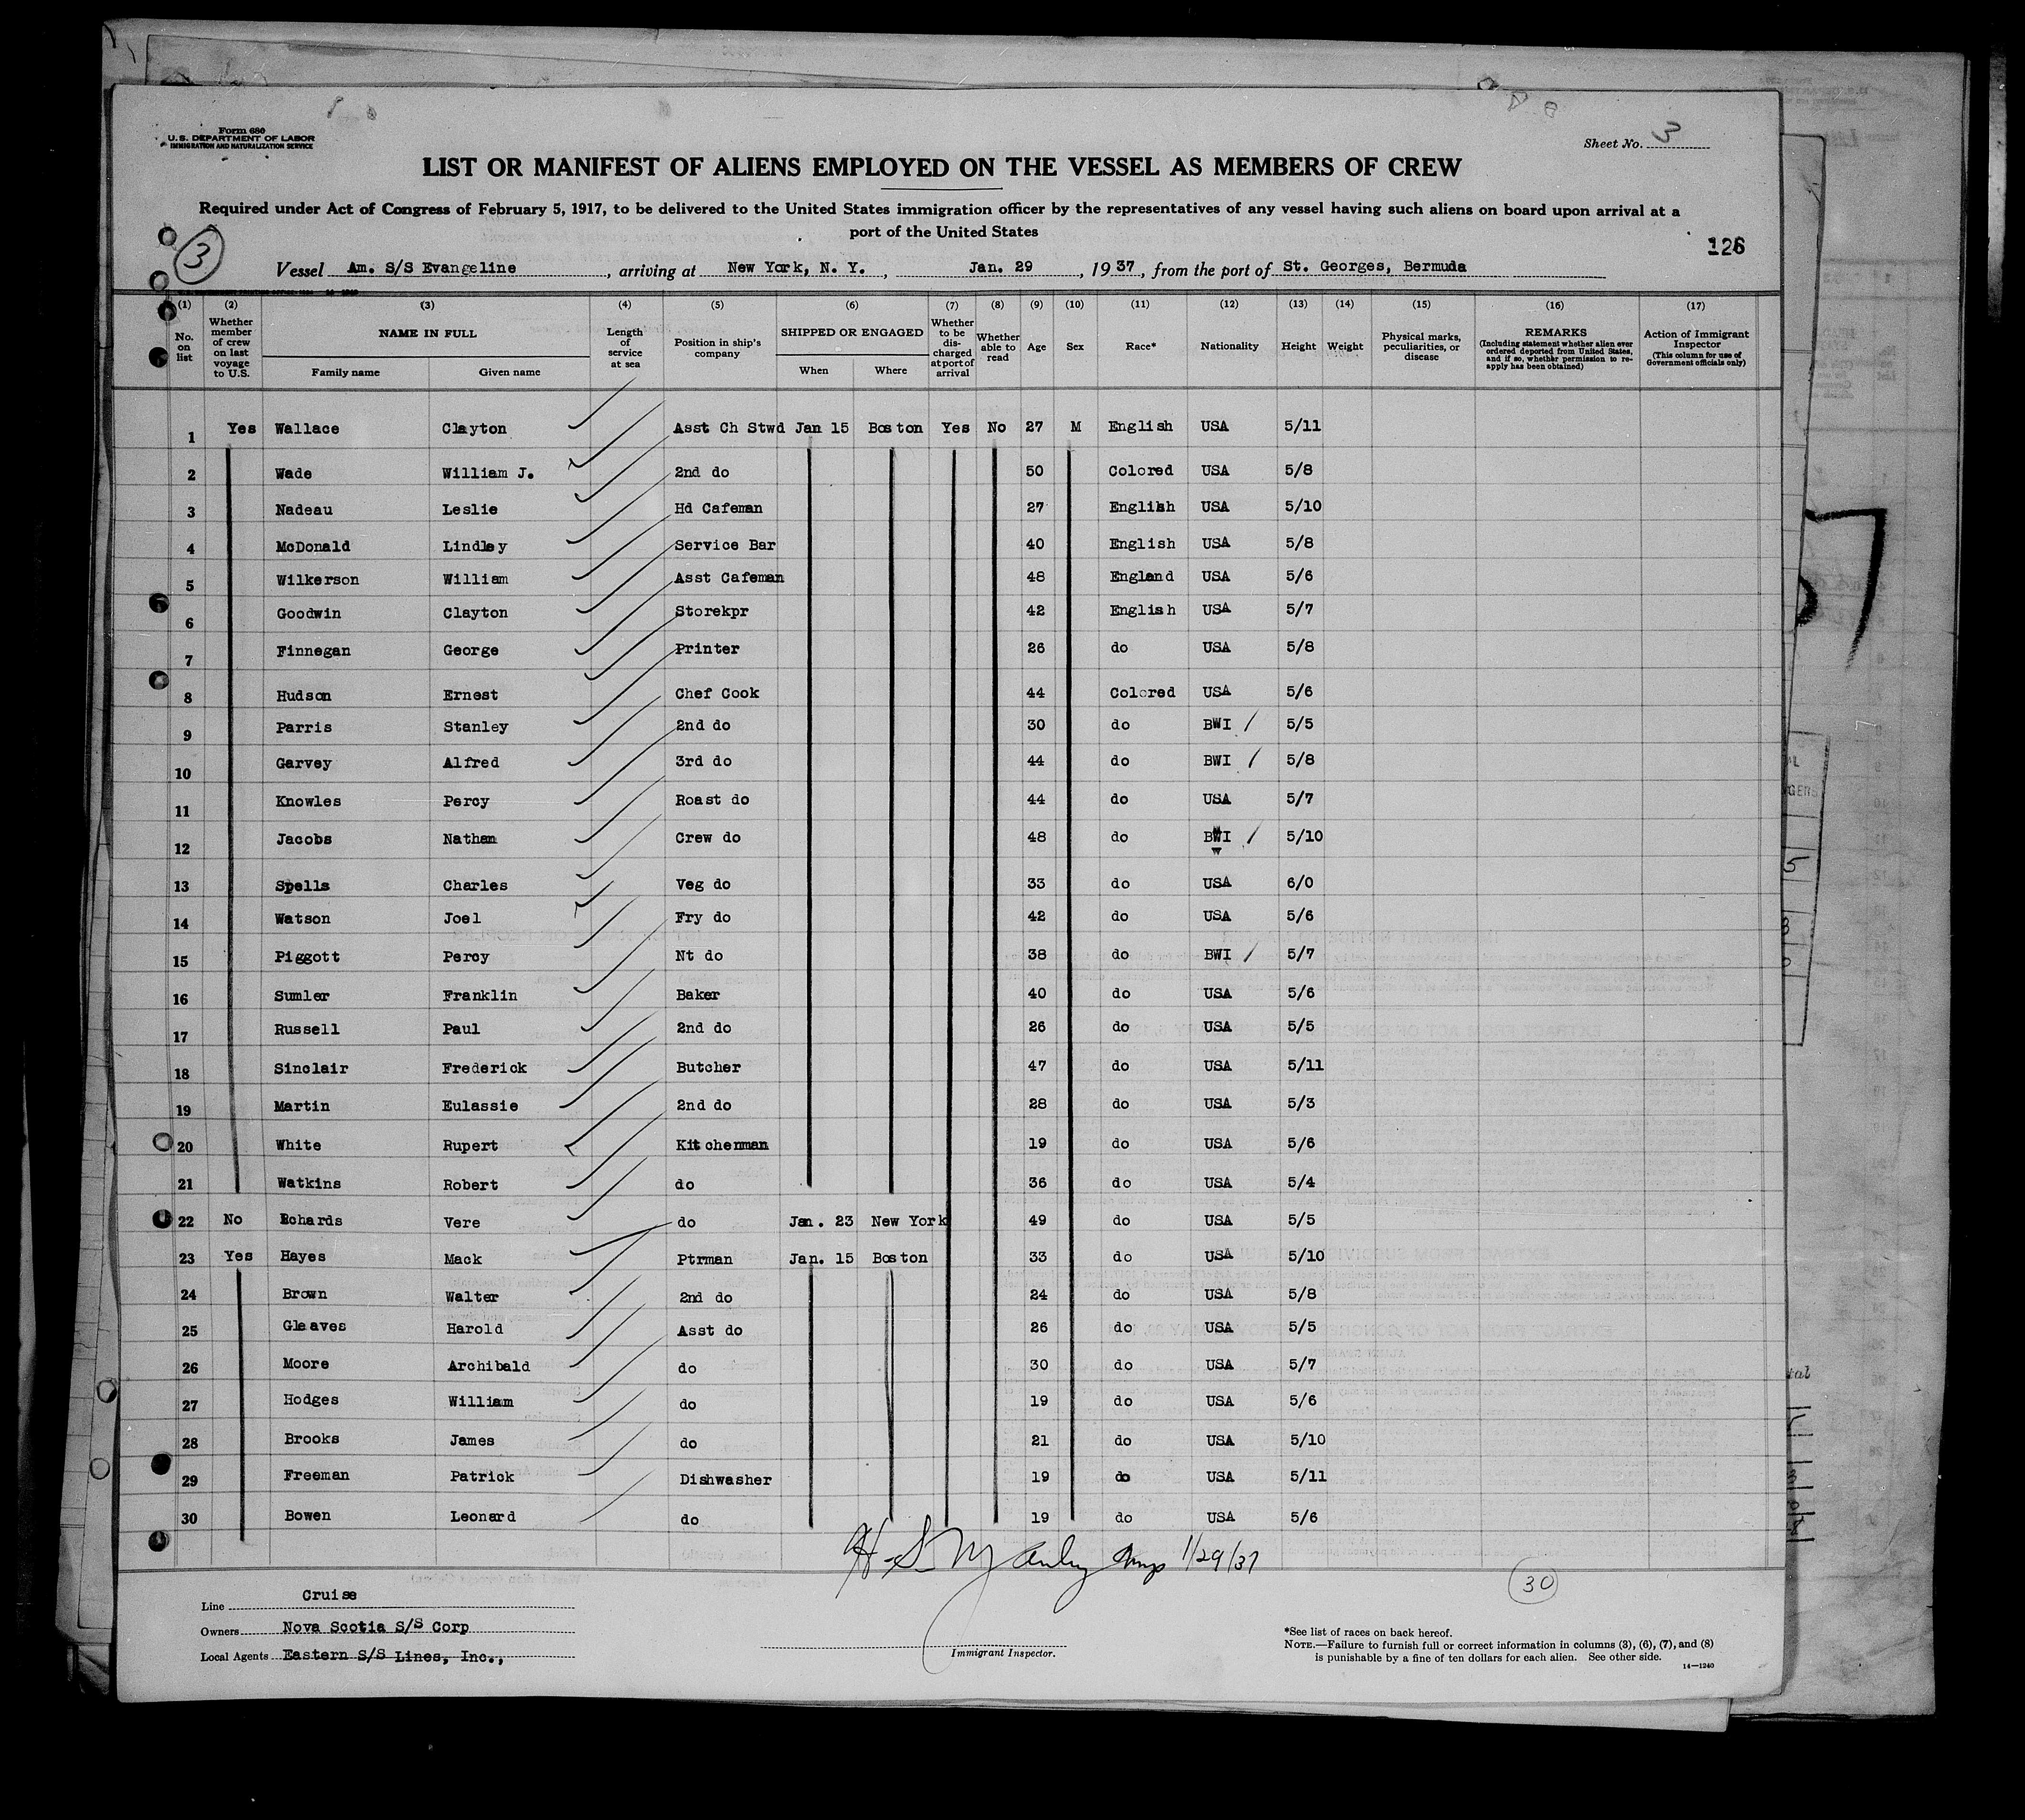 Form 680
U. S. DEPARTMENT OF LABOR
IMMIGRATION AND NATURALIZATION SERVICE
Sheet No. 3
LIST OR MANIFEST OF ALIENS EMPLOYED ON THE VESSEL AS MEMBERS OF CREW
Required under Act of Congress of February 5, 1917, to be delivered to the United States immigration officer by the representatives of any vessel having such aliens on board upon arrival at a
port of the United States
3
126
Vessel Am. S/S Evangeline, arriving at New York, N. Y., Jan. 29, 1937, from the port of St. Georges, Bermuda
(1) (2) (3) (4) (5) (6) (7) (8) (9) (10) (11) (12) (13) (14) (15) (16) (17)
No. on list
Whether member of crew on last voyage to U.S.
NAME IN FULL
Family name Given name
Length of service at sea
Position in ship's company
SHIPPED OR ENGAGED
When Where
Whether to be discharged at port of arrival
Whether able to read
Age
Sex
Race*
Nationality
Height
Weight
Physical marks, peculiarities, or disease
REMARKS
(Including statement whether alien ever ordered deported from United States, and if so, whether permission to reapply has been obtained)
Action of Immigrant Inspector
(This column for use of Government officials only)
1 Yes Wallace Clayton Asst Ch Stwd Jan 15 Boston Yes No 27 M English USA 5/11
2 Wade William J. 2nd do 50 Colored USA 5/8
3 Nadeau Leslie Hd Cafeman 27 English USA 5/10
4 McDonald Lindley Service Bar 40 English USA 5/8
5 Wilkerson William Asst Cafeman 48 England USA 5/6
6 Goodwin Clayton Storekpr 42 English USA 5/7
7 Finnegan George Printer 26 do USA 5/8
8 Hudson Ernest Chef Cook 44 Colored USA 5/6
9 Parris Stanley 2nd do 30 do BWI / 5/5
10 Garvey Alfred 3rd do 44 do BWI / 5/8
11 Knowles Percy Roast do 44 do USA 5/7
12 Jacobs Nathan Crew do 48 do BWI / 5/10
13 Spells Charles Veg do 33 do USA 6/0
14 Watson Joel Fry do 42 do USA 5/6
15 Piggott Percy Nt do 38 do BWI / 5/7
16 Sumler Franklin Baker 40 do USA 5/6
17 Russell Paul 2nd do 26 do USA 5/5
18 Sinclair Frederick Butcher 47 do USA 5/11
19 Martin Eulassie 2nd do 28 do USA 5/3
20 White Rupert Kitchenman 19 do USA 5/6
21 Watkins Robert do 36 do USA 5/4
22 No Rchards Vere do Jan. 23 New York 49 do USA 5/5
23 Yes Hayes Mack Ptrman Jan. 15 Boston 33 do USA 5/10
24 Brown Walter 2nd do 24 do USA 5/8
25 Gleaves Harold Asst do 26 do USA 5/5
26 Moore Archibald do 30 do USA 5/7
27 Hodges William do 19 do USA 5/6
28 Brooks James do 21 do USA 5/10
29 Freeman Patrick Dishwasher 19 do USA 5/11
30 Bowen Leonard do 19 do USA 5/6
H. S. 1/29/37
30
Line Cruise
Owners Nova Scotia S/S Corp
Local Agents Eastern S/S Lines, Inc.,
Immigrant Inspector.
*See list of races on back hereof.
NOTE.—Failure to furnish full or correct information in columns (3), (6), (7), and (8)
is punishable by a fine of ten dollars for each alien. See other side.
14—1240